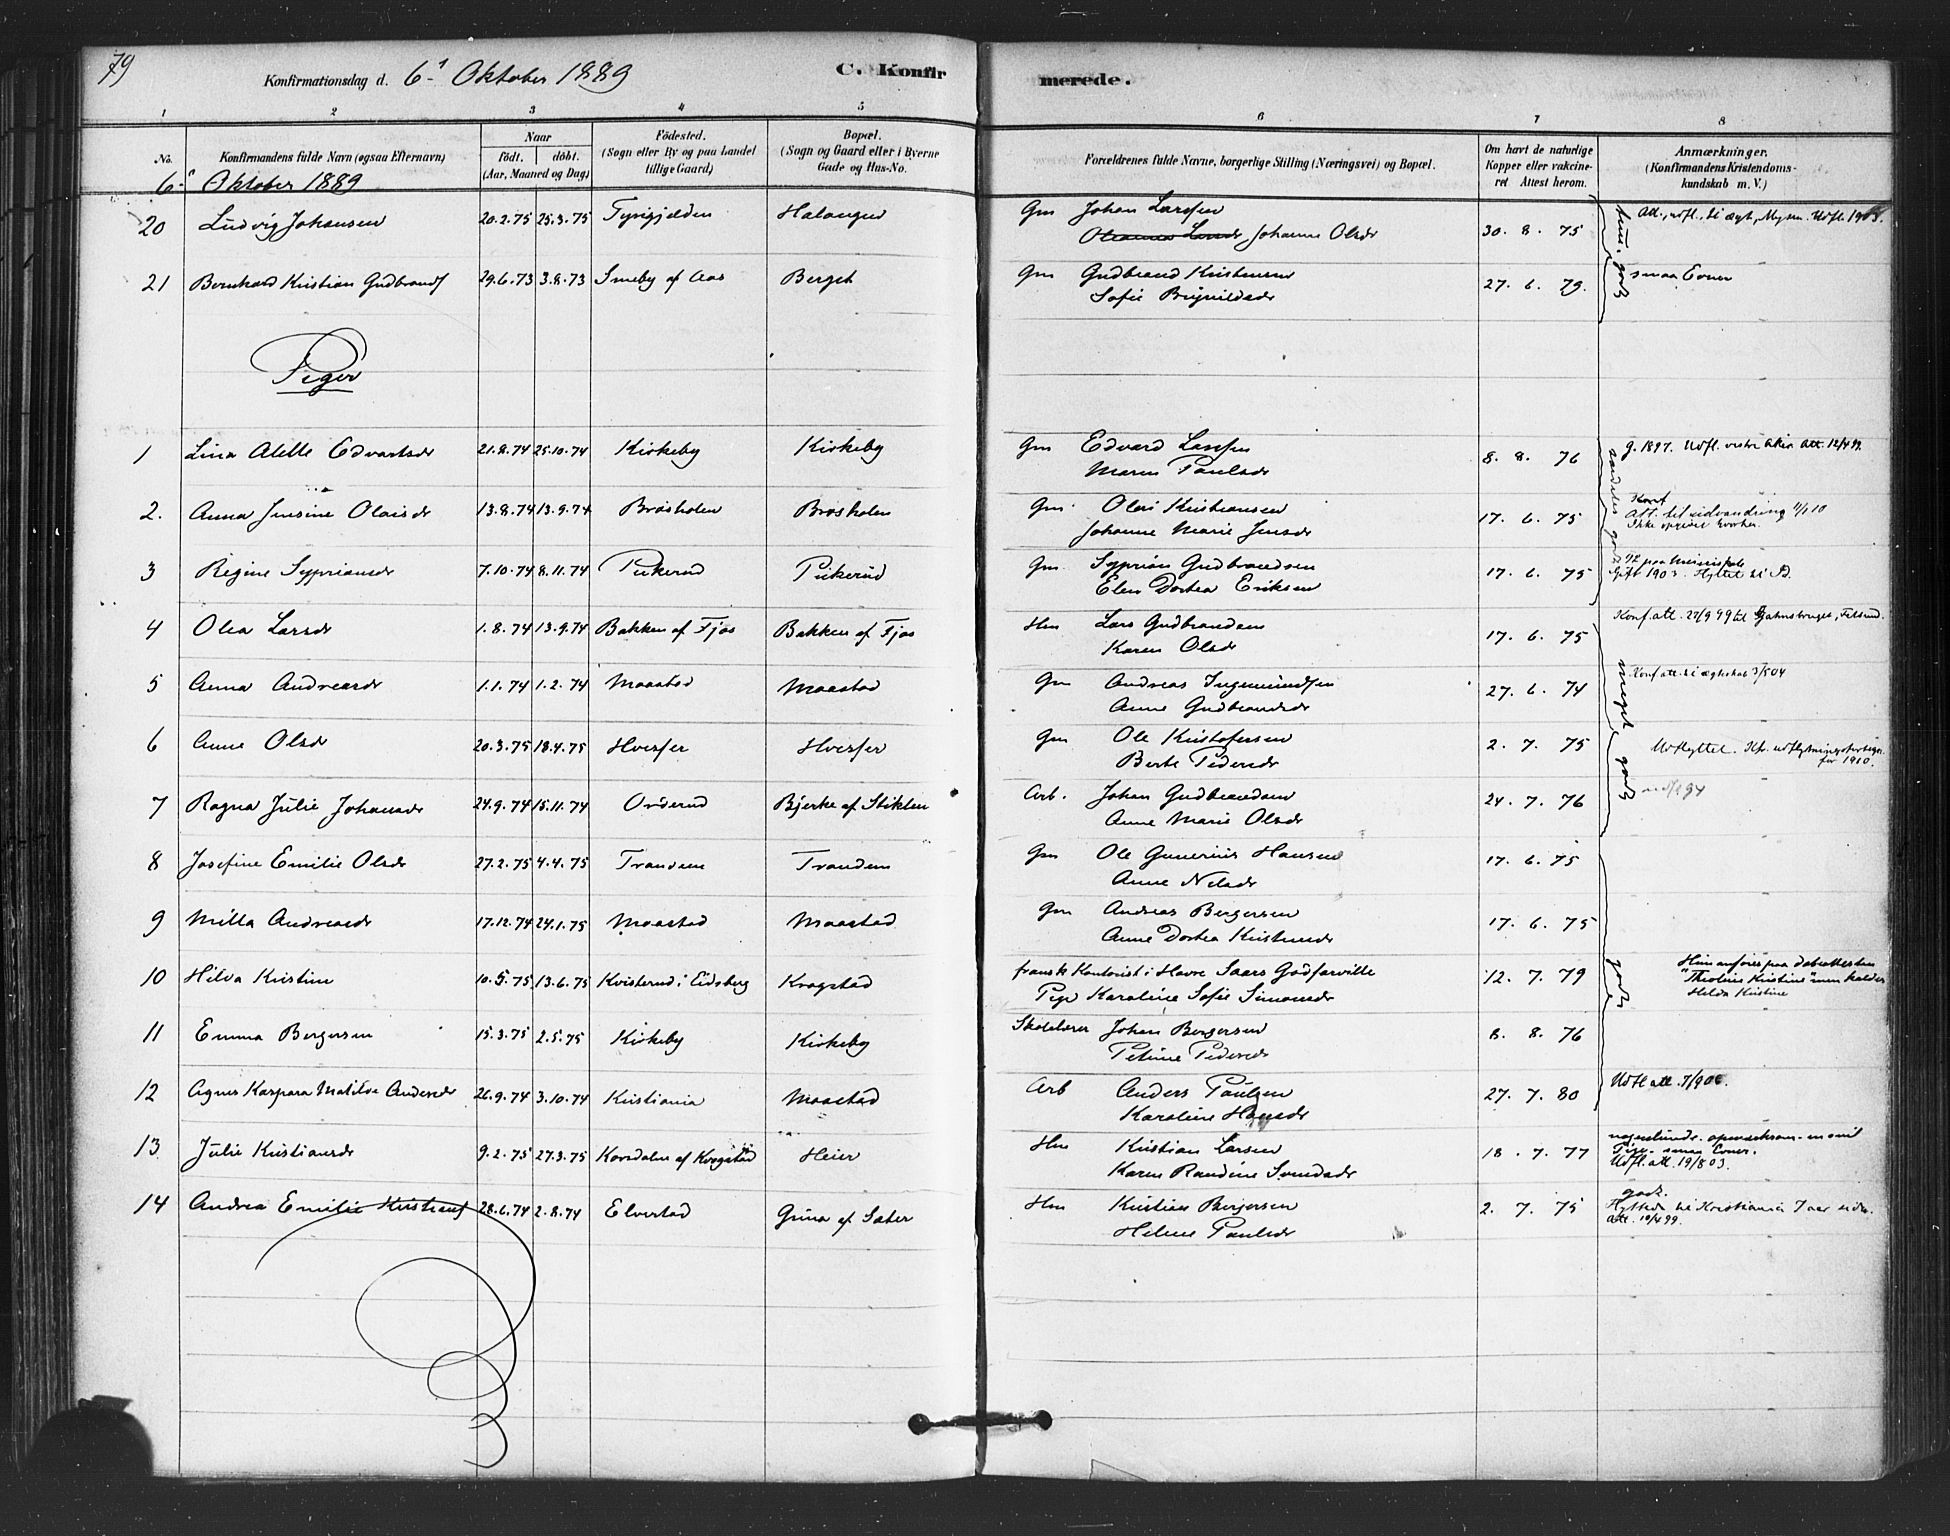 79
Konfirmationsdag d. 6te Oktober 1889
C. Konfirmerede.
1 2 3 4 5 6 7 8
No.
Konfirmandens fulde Navn (ogsaa Efternavn)
Naar
födt. döbt.
(Aar, Maaned og Dag)
Födested.
(Sogn eller By og paa Landet tillige Gaard)
Bopæl.
(Sogn og Gaard eller i Byerne Gade og Hus-No.
Forældrenes fulde Navne, borgerlige Stilling (Næringsvei) og Bopæl.
Om havt de naturlige Kopper eller vakcineret Attest herom.
Anmærkninger.
(Konfirmandens Kristendomskundskab m. V.)
6te Oktober 1889
20 Ludvig Johansen 20.2.75 25.3.75 Tyrigjelden Halangen Gm Johan Larssen 30. 8. 75
Johanne Olsdr
21 Bernhard Kristian Gudbrands 29.6.73 3.8.73 Smeby af Aas Berget Gm Gudbrand Kristensen 27. 6. 79. smaa Evner
Sofie Brynildsdr
Piger
1 Lina Alette Edvartsdr 21.8.74 25.10.74 Kirkeby Kirkeby Gm Edvard Larssen 8. 8. 76 g. 1897. Udfl. vestre Aker att. 12/4 99
Maren Paulsdr
2. Anna Jensine Olaisdr 13.8.74 13.9.74 Brosholen Brosholen Gm Olai Kristiansen 17. 6. 75 Konf. Att. til udvandring
Johanne Marie Jensdr
3 Regine Sypriansdr 7.10.74 8.11.74 Pukerud Pukerud Gm Syprian Gudbrandsen 17. 6. 75 Gift 1903.
Elen Dortea Eriksen
4 Olea Larsdr 1.8.74 13.9.74 Bakken af Fjøs Bakken af Fjøs Hm Lars Gudbrandsen 17. 6. 75 Konf. att. 27/9 99 til
Karen Olsdr
5 Anna Andreasdr 1.1.74 1.2.74 Maastad Maastad Gm Andreas Ingemundsen 27. 6. 74 Konf att. til ægteskab 3/5 04
Anne Gudbrandsdr
meget godt
6 Anne Olsdr 20.3.75 18.4.75 Hvesser Hvesser Gm Ole Kristofersen 2. 7. 75 Udflyttet.
Berte Pedersdr for 1910.
7 Ragna Julie Johansdr 24.9.74 15.11.74 Orderud Bjerke af Stiklen Arb. Johan Gudbrandsen 24. 7. 76
Anne Marie Olsdr
8 Josefine Emilie Olsdr 27.2.75 4.4.75 Trandem Trandem Gm Ole Gunerius Hansen 17. 6. 75
Anne Nilsdr
9 Milla Andreasdr 17.12.74 24.1.75 Maastad Maastad Gm Andreas Bergersen 17. 6. 75
Anne Dortea Kristensdr
godt
10 Hilda Kristine 10.5.75 13.6.75 Kvisterud i Eidsberg Krogstad fransk Kontorist i Havre Saars Godfarville 12. 7. 79 Hun anføres paa Dobsattesten
Pige Karoline Sofie Simonsdr "Theoline Kristine" men kaldes
Hilda Kristine
11 Emma Bergersen 15.3.75 2.5.75 Kirkeby Kirkeby Skolelærer Johan Bergersen 8. 8. 76
Petrine Pedersdr
12 Agnes Kaspara Matilde Andersdr 26.9.74 3.10.74 Kristiania Maastad Arb Anders Paulsen 27. 7. 80 Udfl att.
Karoline Hansdr
13 Julie Kristiansdr 9.2.75 27.3.75 Korsdalen af Krogstad Heier Hm Kristian Larsen 18. 7. 77
Karen Randine Svendsdr Pige. smaa Evner.
Udfl. att. 19/8 03.
14 Andrea Emilie Kristians 28.6.74 2.8.74 Elvestad Grina af Sæter Hm Kristian Bergersen 2. 7. 75 godt.
Helene Paulsdr Flyttede til Kristiania 7 aar siden.
att. 10/4 99.